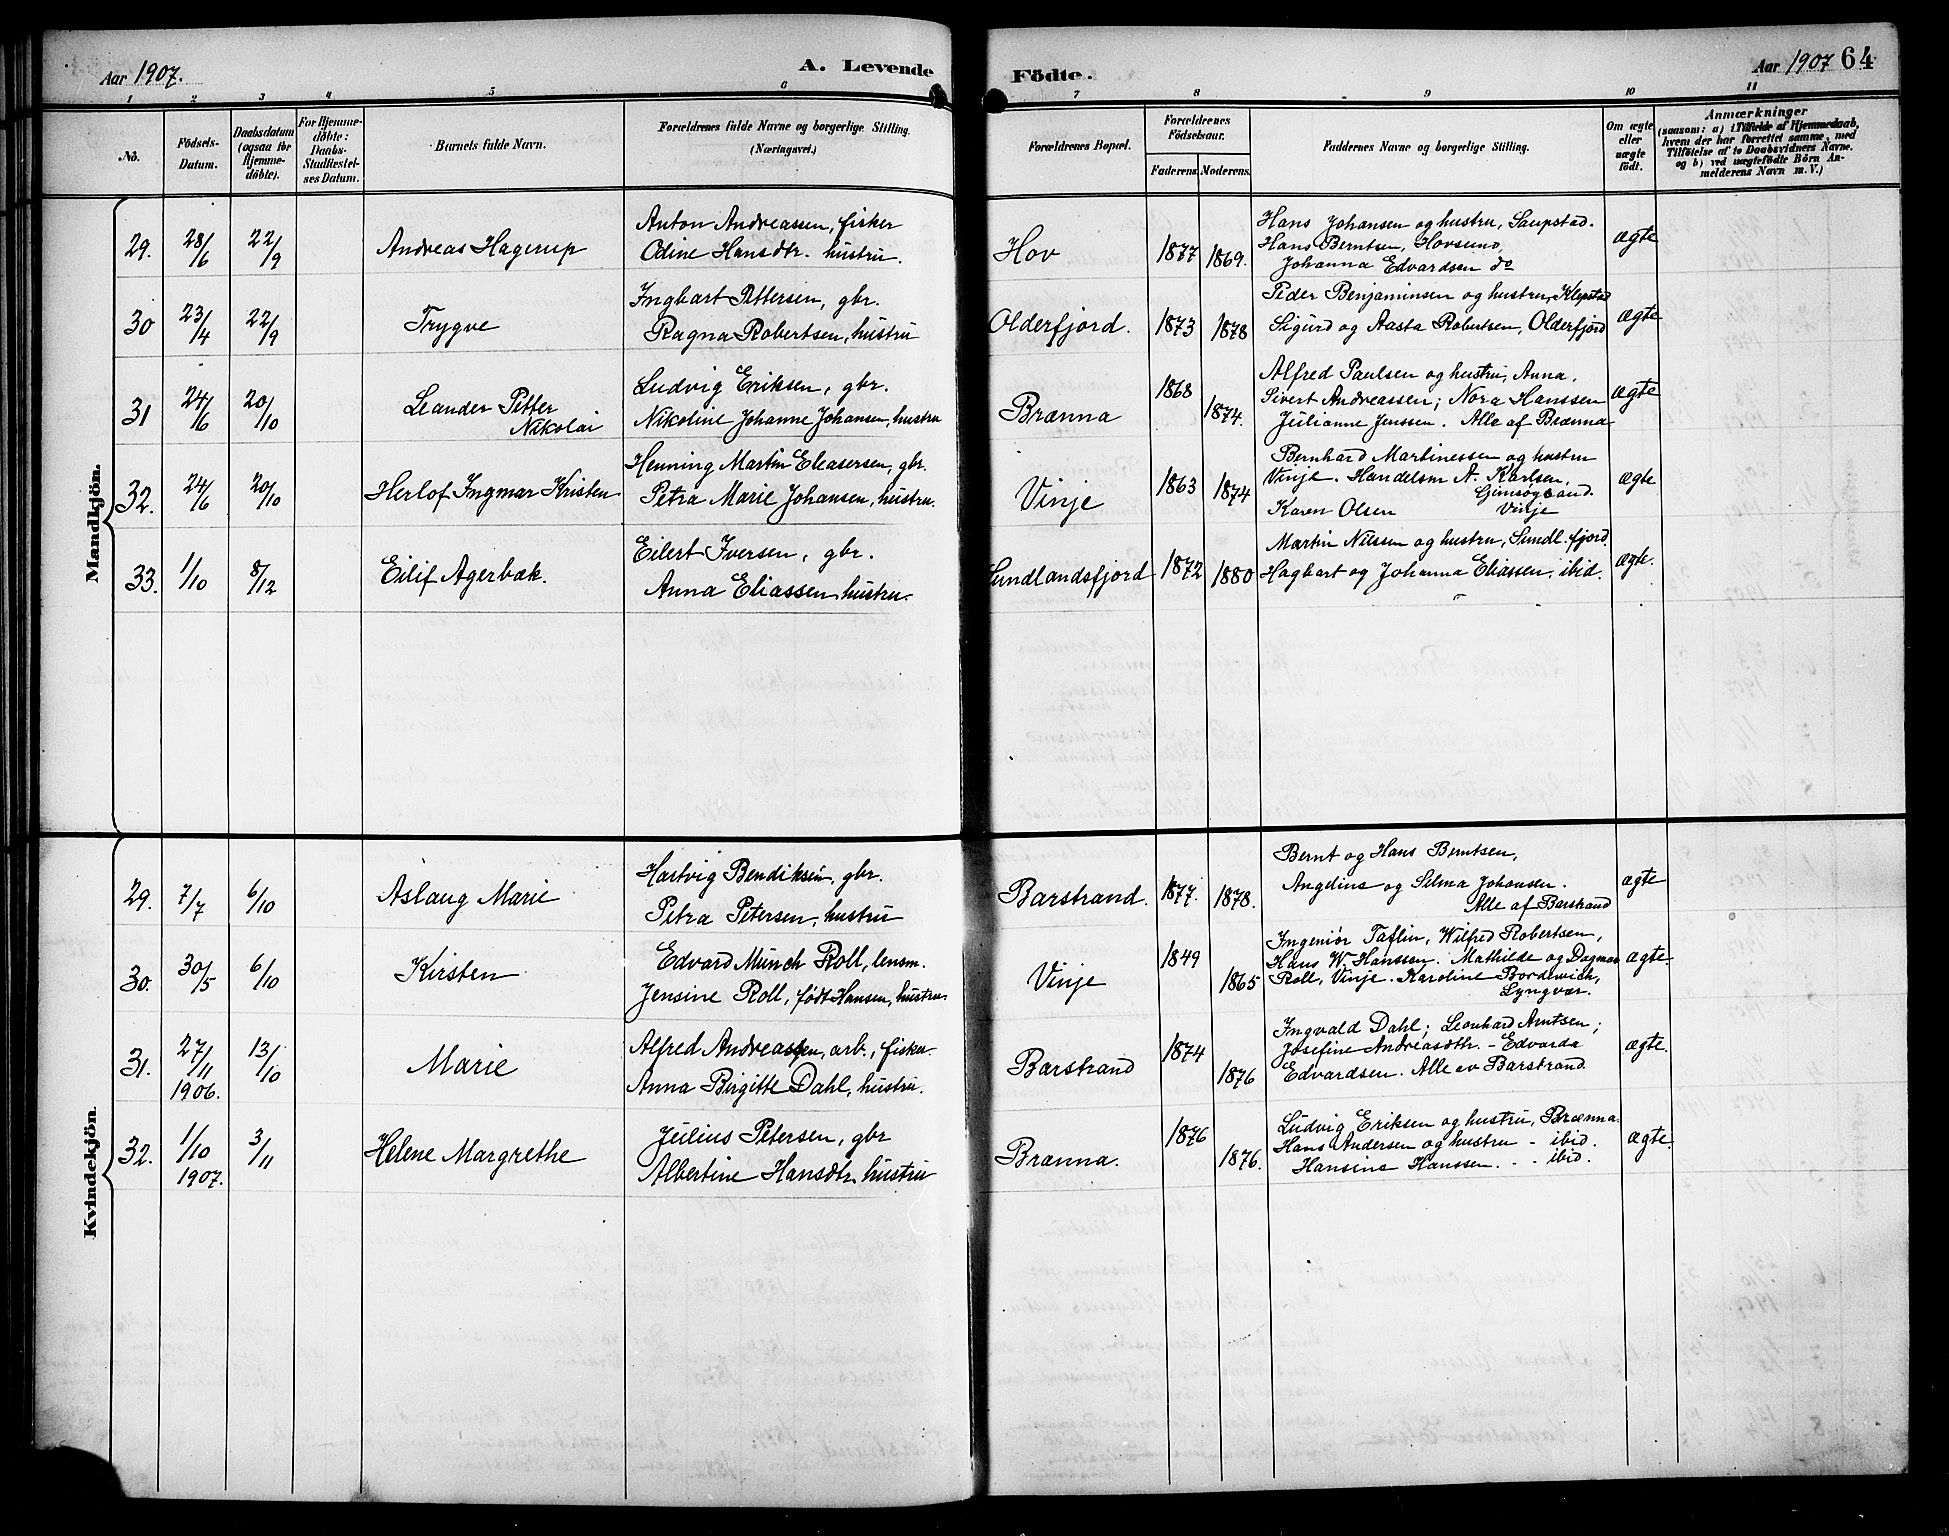 Aar 1907.
A. Levende
1 2 3 4 5 6
No.
Födsels-Datum.
Daabsdatum (ogsaa for Hjemmedöbte).
For Hjemmedöbte: Daabs-Stadfæstelses Datum.
Barnets fulde Navn.
Forældrenes fulde Navne og borgerlige Stilling. (Næringsvei.)
Mandkjön.
29. 28/6 22/9 Andreas Hagerup
Anton Andreassen, fisker
Odine Hansdtr. hustru.
30 23/4 22/9 Trygve
Ingbart Pettersen, gbr.
Ragna Robertsen, hustru
31 24/6 20/10 Leander Petter
Nikolai
Ludvig Eriksen, gbr.
Nikoline Johanne Johansen, hustru
32. 24/6 20/10 Herlof Ingmar Kristen
Henning Martin Eleasersen, gbr.
Petra Marie Johansen, hustru.
33. 1/10 8/12 Eilif Agerbæk.
Eilert Iversen, gbr.
Anna Eliassen hustru.
Kvindekjön.
29. 7/7 6/10 Aslaug Marie
Hartvig Bendiksen, gbr.
Petra Petersen, hustru
30. 30/5 6/10 Kirsten
Edvard Münch Roll, lensm.
Jensine Roll, født Hansen, hustru.
31. 27/11 1906. 13/10 Marie
Alfred Andreassen, arb., fisker.
Anna Birgitte Dahl, hustru.
32. 1/10 1907. 3/11 Helene Margrethe
Julius Petersen, gbr
Albertine Hansdtr, hustru
Födte.
Aar 1907 64
7 8 9 10 11
Forældrenes Bopæl.
Forældrenes Födselsaar.
Faderens. Moderens.
Faddernes Navne og borgerlige Stilling.
Om ægte eller uægte födt.
Anmærkninger
(saasom: a) i Tilfælde af Hjemmedaab,
hvem der har forrettet samme, med
Tilföielse af to Daabsvidners Navne.
og b) ved uægtefödte Börn An-
melderens Navn m. V.)
Hov 1877 1869.
Hans Johansen og hustru, Saupstad.
Hans Berntsen, Hovsund,
Johanna Edvardsen do
ægte
Olderfjord. 1873 1878
Peder Benjaminsen og hustru, Klepstad
Sigurd og Aasta Robertsen, Olderfjord
ægte
Brænna 1868 1874.
Alfred Paulsen og hustru, Anna,
Sivert Andreassen; Nora Hanssen
Julianne Jenssen. Alle af Brænna
ægte
Vinje 1863 1874
Bernhard Martinessen og hustru
Vinje. Handelsm A. Karlsen,
Gimsøysand.
Karen Olsen Vinje
ægte
Sundlandsfjord 1872 1880
Martin Nilssen og hustru, Sundl.fjord.
Hagbart og Johanna Eliassen, ibid.
ægte.
Barstrand. 1877. 1878.
Bernt og Hans Berntsen,
Angeline og Selma Johansen.
Alle af Barstrand
ægte
Vinje 1849 1865
Ingeniör Taflin, Wilfred Robertsen,
Hans W. Hanssen. Mathilde og Dagmar
Roll, Vinje. Karoline Bordewich,
Lyngvær.
ægte.
Barstrand 1874 1876
Ingvald Dahl; Leonhard Arntsen;
Josefine Andreasdtr. - Edvarda
Edvardsen. Alle av Barstrand
ægte.
Brænna. 1876 1876.
Ludvig Eriksen og hustru, Brænna.
Hans Andersen og hustru - ibid.
Hansine Hanssen. - - ibid.
ægte.